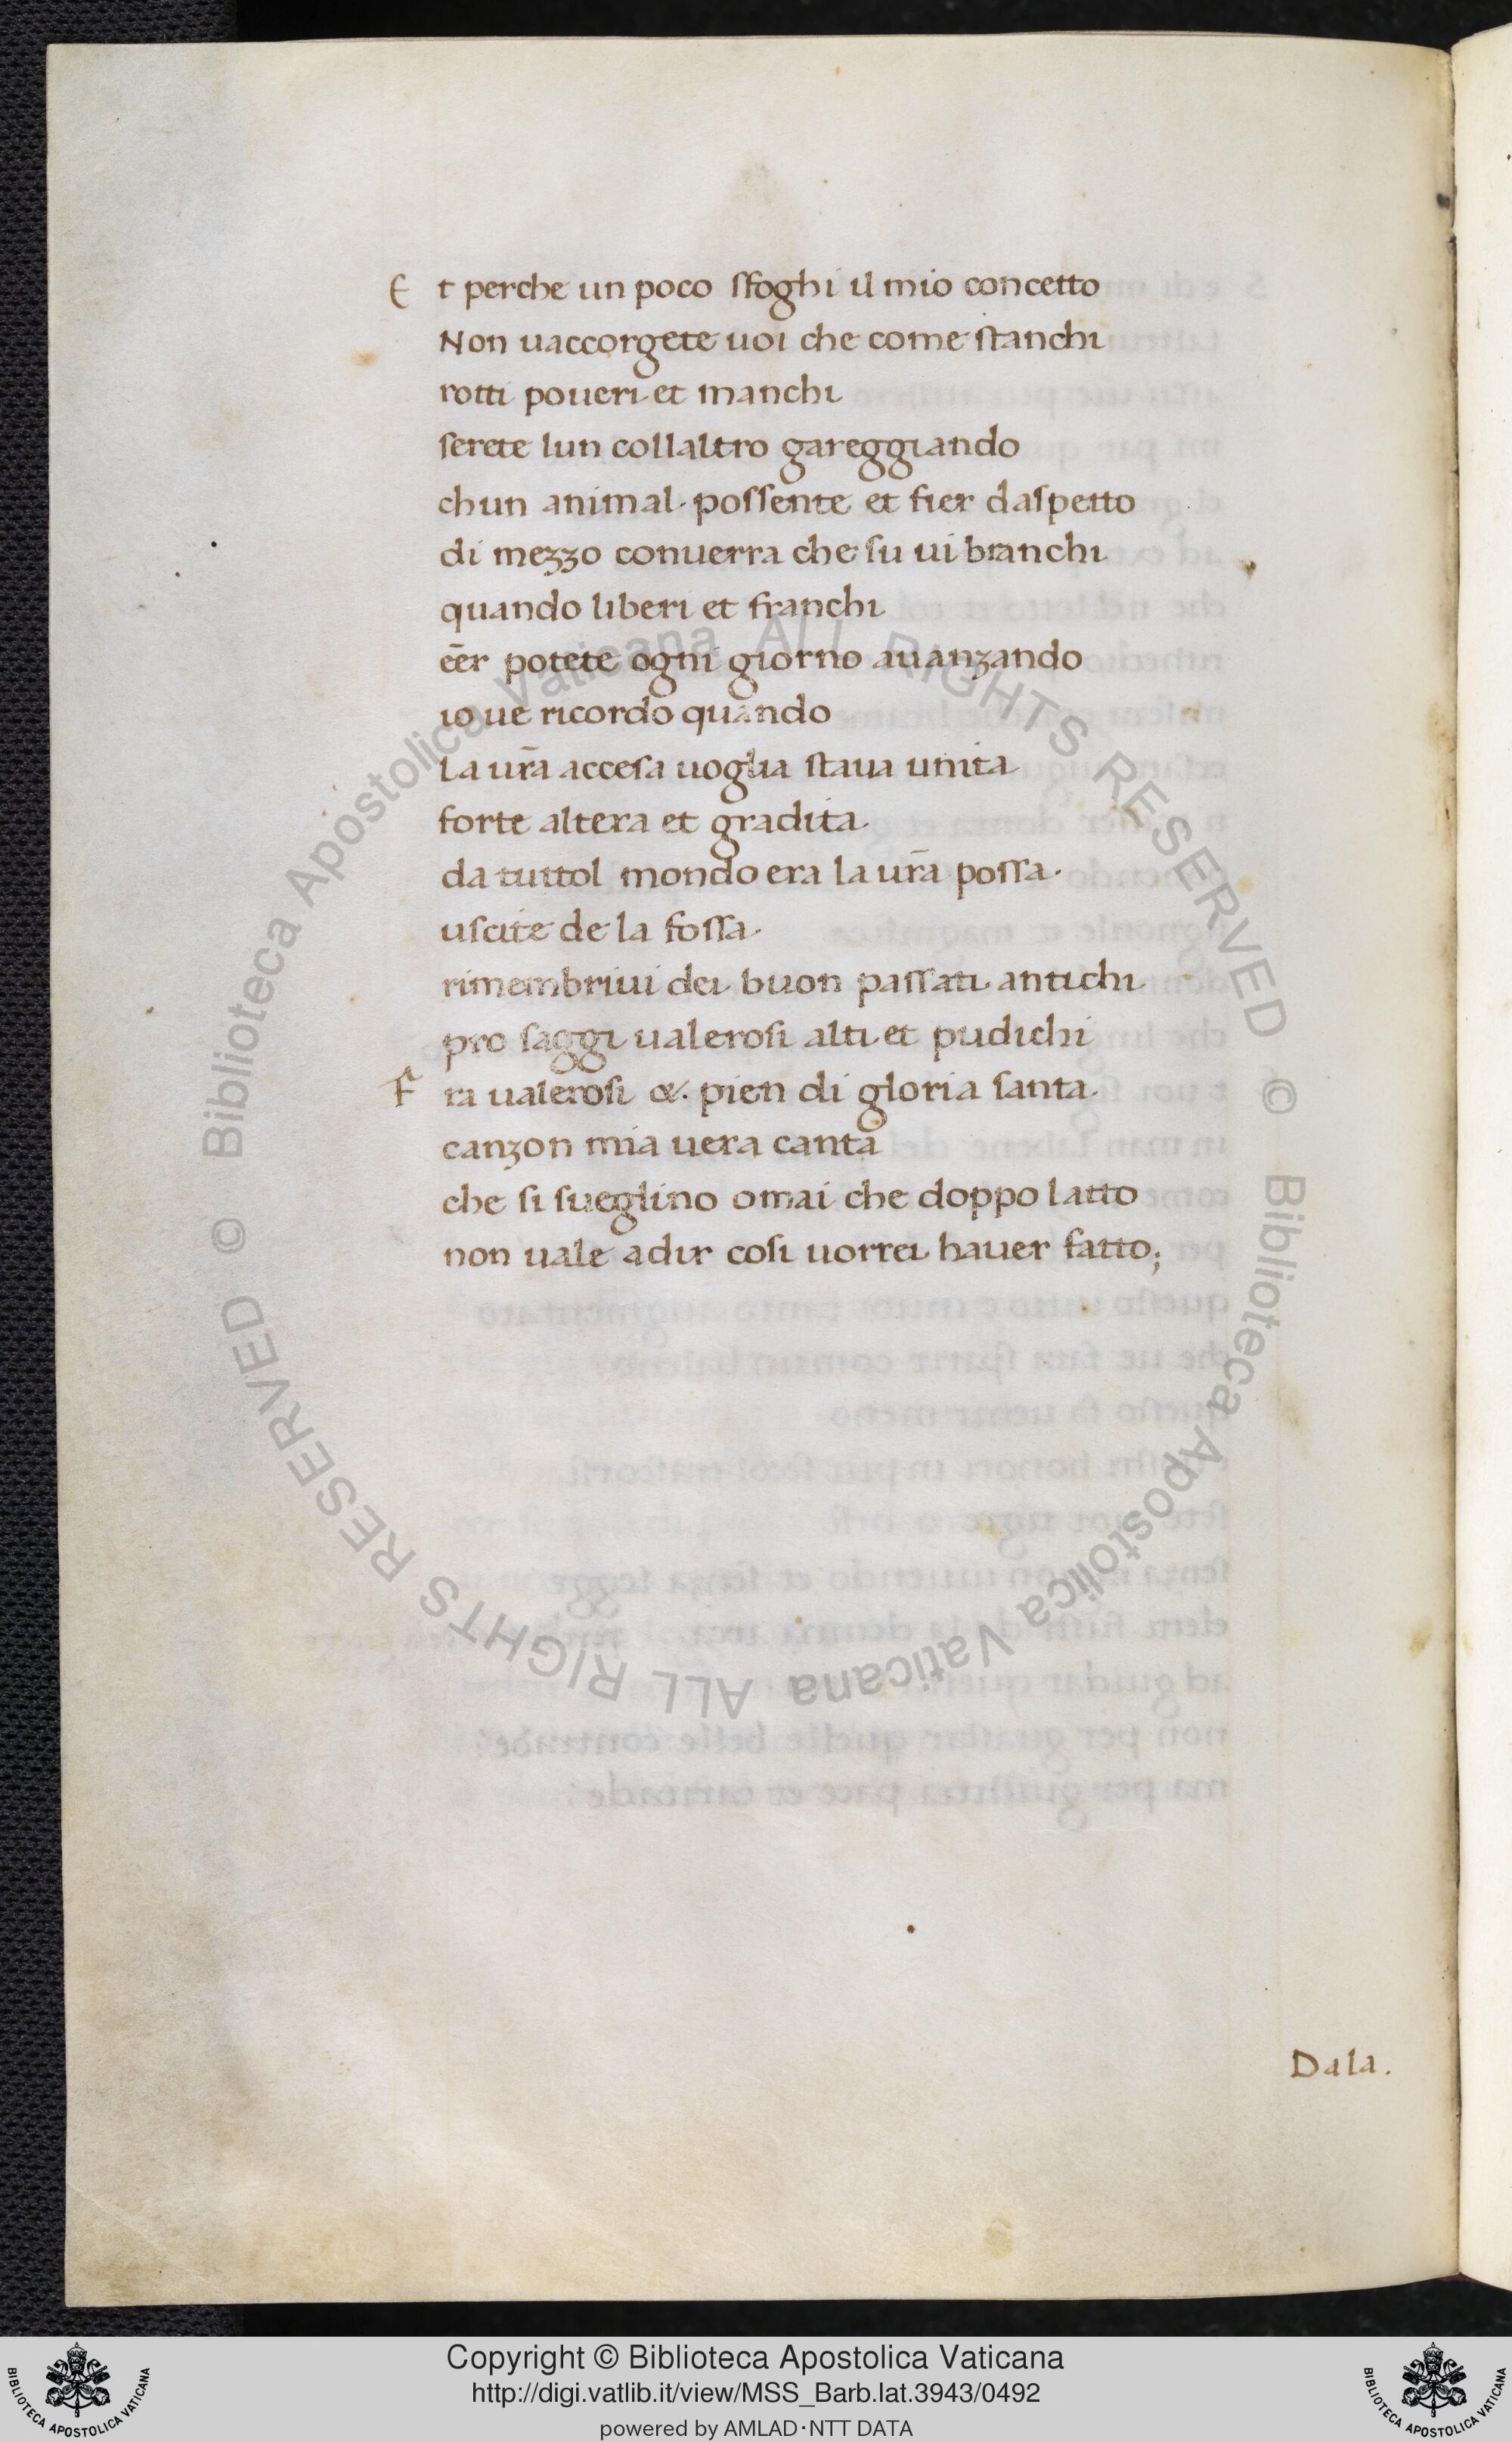 Et perche un poco sfoghi il mio concetto
Non uaccorgete uoi che come stanchi
rotti poueri et manchi
serete lun collaltro gareggiando
chun animal possente et fier daspetto
di mezzo conuerra che su ui branchi
quando liberi et franchi
eēr potete ogni giorno auanzando
io ue ricordo quando
La ur̄a accesa uoglia staua unita
forte altera et gradita
da tuttol mondo era la ur̄a possa.
uscite de la fossa
rimembriui dei buon passati antichi
pro saggi ualerosi alti et pudichi
Fra ualerosi &. pien di gloria santa
canzon mia uera canta
che si sueglino omai che doppo latto
non uale adir cosi uorrei hauer fatto;
Dala.
© Biblioteca Apostolica Vaticana ALL RIGHTS RESERVED © Biblioteca Apostolica Vaticana ALL RIGHTS RESERVED
Copyright © Biblioteca Apostolica Vaticana
http://digi.vatlib.it/view/MSS_Barb.lat.3943/0492
powered by AMLAD·NTT DATA
BIBLIOTECA APOSTOLICA VATICANA
BIBLIOTECA APOSTOLICA VATICANA